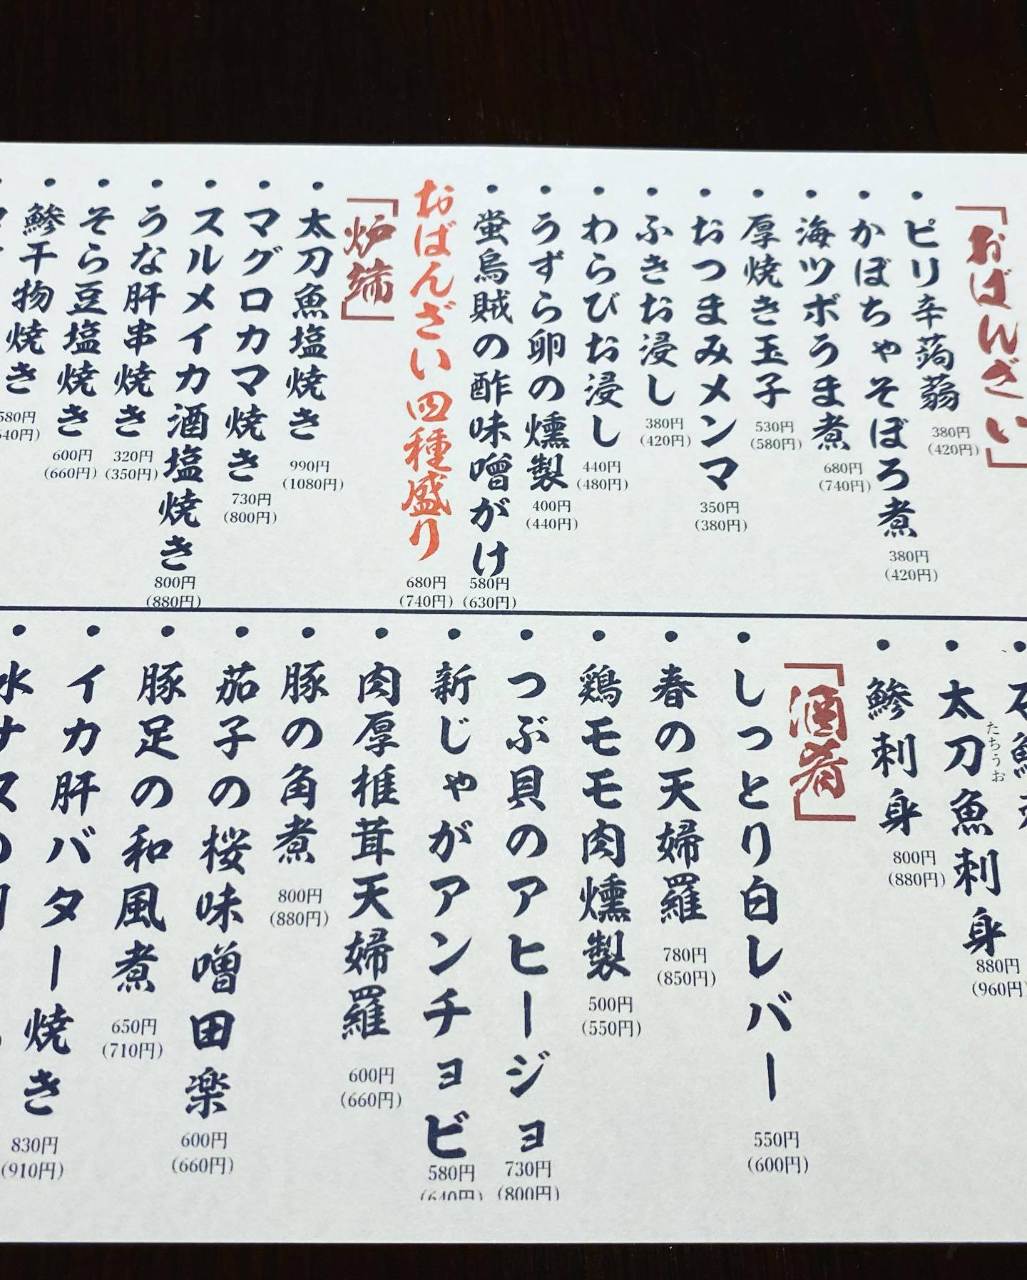 「おばんざい」
・ピリ辛蒟蒻
380円
(420円)
・かぼちゃそぼろ煮
380円
(420円)
・海ツボうま煮
680円
(740円)
・厚焼き玉子
530円
(580円)
・おつまみメンマ
350円
(380円)
・ふきお浸し
380円
(420円)
・わらびお浸し
440円
(480円)
・うずら卵の燻製
400円
(440円)
・蛍烏賊の酢味噌がけ
580円
(630円)
おばんざい四種盛り
680円
(740円)
「炉端」
・太刀魚塩焼き
990円
(1080円)
・マグロカマ焼き
730円
(800円)
・スルメイカ酒塩焼き
800円
(880円)
・うな肝串焼き
320円
(350円)
・そら豆塩焼き
600円
(660円)
・鯵干物焼き
580円
640円)
・太刀魚刺身
たちうお
880円
(960円)
・鯵刺身
800円
(880円)
「酒肴」
・しっとり白レバー
550円
(600円)
・春の天婦羅
780円
(850円)
・鶏モモ肉燻製
500円
(550円)
・つぶ貝のアヒージョ
730円
(800円)
・新じゃがアンチョビ
580円
(640円)
・肉厚椎茸天婦羅
600円
(660円)
・豚の角煮
800円
(880円)
・茄子の桜味噌田楽
600円
(660円)
・豚足の和風煮
650円
(710円)
・イカ肝バター焼き
830円
(910円)
・水ナスの